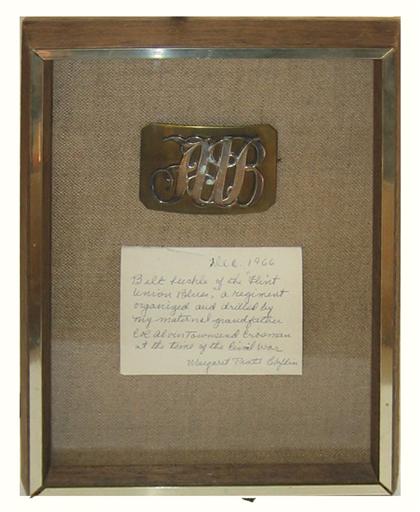 FUB
Dec. 1966
Belt buckle of the "Flint
Union Blues," a regiment
organized and drilled by
my maternal grandfather
Col Alvin Townsend Crosman
at the time of the Civil War
Margaret